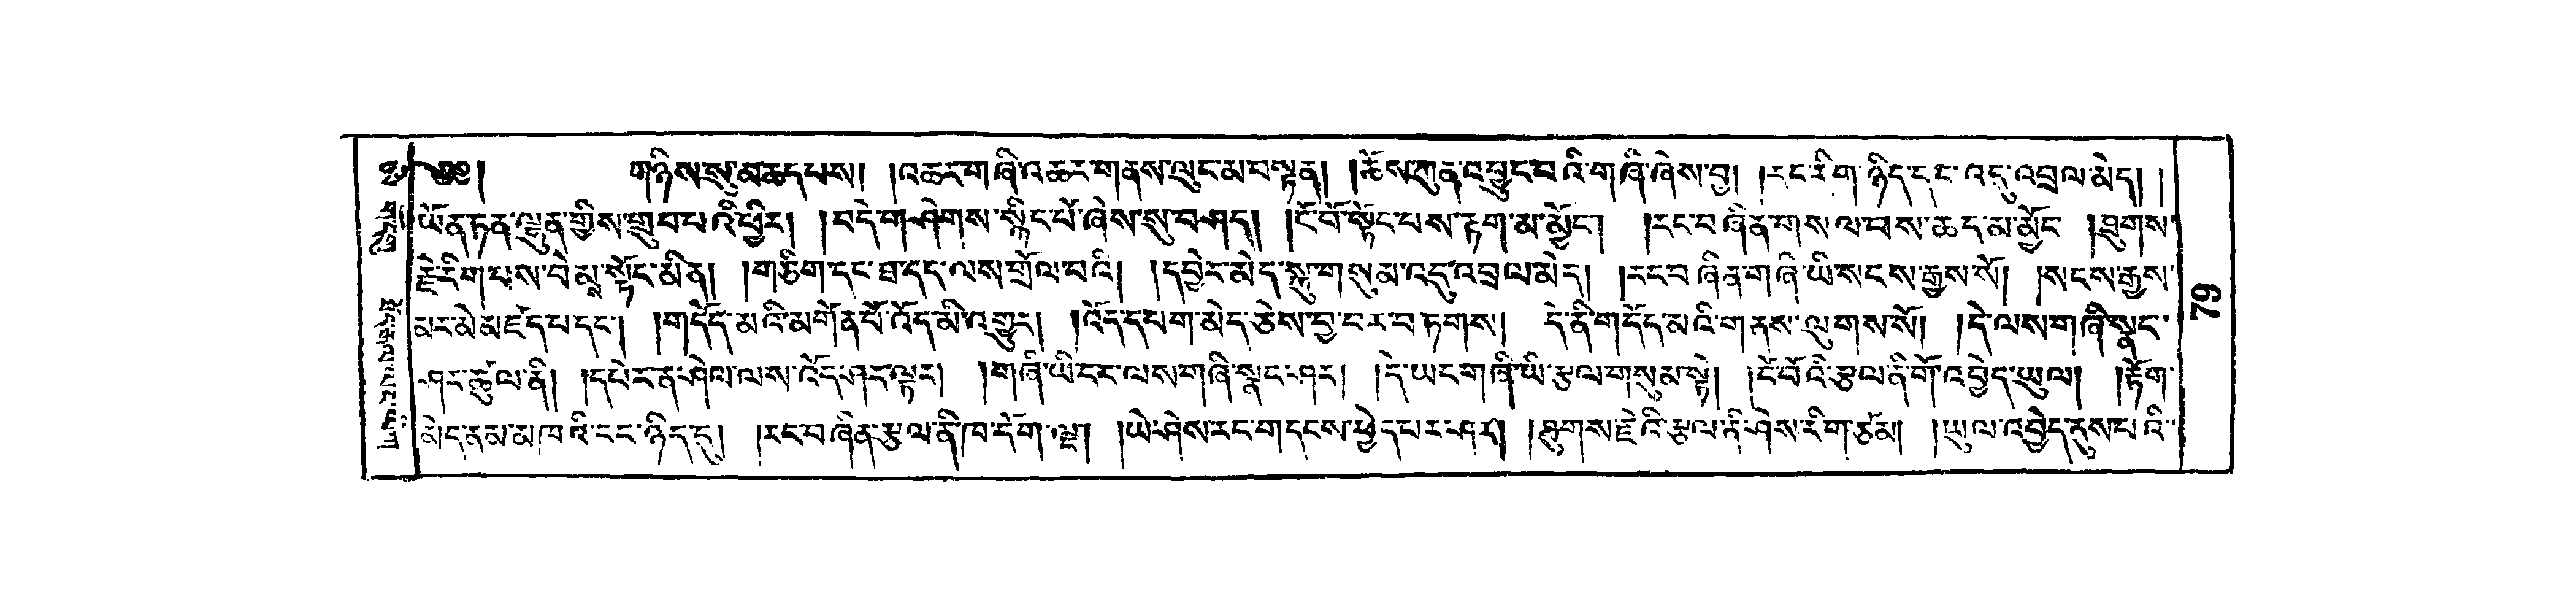 ༄༅། གཉིས་སུ་མཆད་པས། །འཆར་གཞི་འཆར་གནས་ལུང་མ་བསྟན། །ཆོས་ཀུན་འབྱུང་བའི་གཞི་ཞེས་བྱ། །རང་རིག་ཉིད་དང་འདུ་འབྲལ་མེད། །
ཡོན་ཏན་ལྷུན་གྱིས་གྲུབ་པའི་ཕྱིར། །བདེ་གཤེགས་སྙིང་པོ་ཞེས་སུ་བཤད། །ངོ་བོ་སྟོང་པས་རྟག་མ་མྱོང་། །རང་བཞིན་གསལ་བས་ཆད་མ་མྱོང །ཐུགས་
རྗེ་རིག་པས་བེམ་སྟོང་མིན། །གཅིག་དང་ཐ་དད་ལས་གྲོལ་བའི། །དབྱེར་མེད་སྐུ་གསུམ་འདུ་འབྲལ་མེད། །རང་བཞིན་གཞི་ཡི་སངས་རྒྱས་སོ། །སངས་རྒྱས་
མར་མེ་མཛད་པ་དང་། །གདོད་མའི་མགོན་པོ་འོད་མི་འགྱུར། །འོད་དཔག་མེད་ཅེས་བྱ་ངར་བཏགས། དེ་ནི་གདོད་མའི་གནས་ལུགས་སོ། །དེ་ལས་གཞི་སྣང་
ཤར་ཚུལ་ནི། །དཔེར་ན་ཤེལ་ལས་འོད་ཤར་ལྟར། །གཞི་ཡི་ངང་ལས་གཞི་སྣང་ཤར། །དེ་ཡང་གཞི་ཡི་རྩལ་གསུམ་སྟེ། །ངོ་བོའི་རྩལ་ནི་གོ་འབྱེད་ཡུལ། །རྟོག་
མེད་ནམ་མཁའི་ངང་ཉིད་དུ། །རང་བཞིན་རྩལ་ནི་ཁ་དོག་ལྔ། །ཡེ་ཤེས་རང་གདངས་ཕྱེད་པར་ཤར། །ཐུགས་རྗེའི་རྩལ་ནི་ཤེས་རིག་ཙམ། །ཡུལ་འབྱེད་ནུས་པའི་